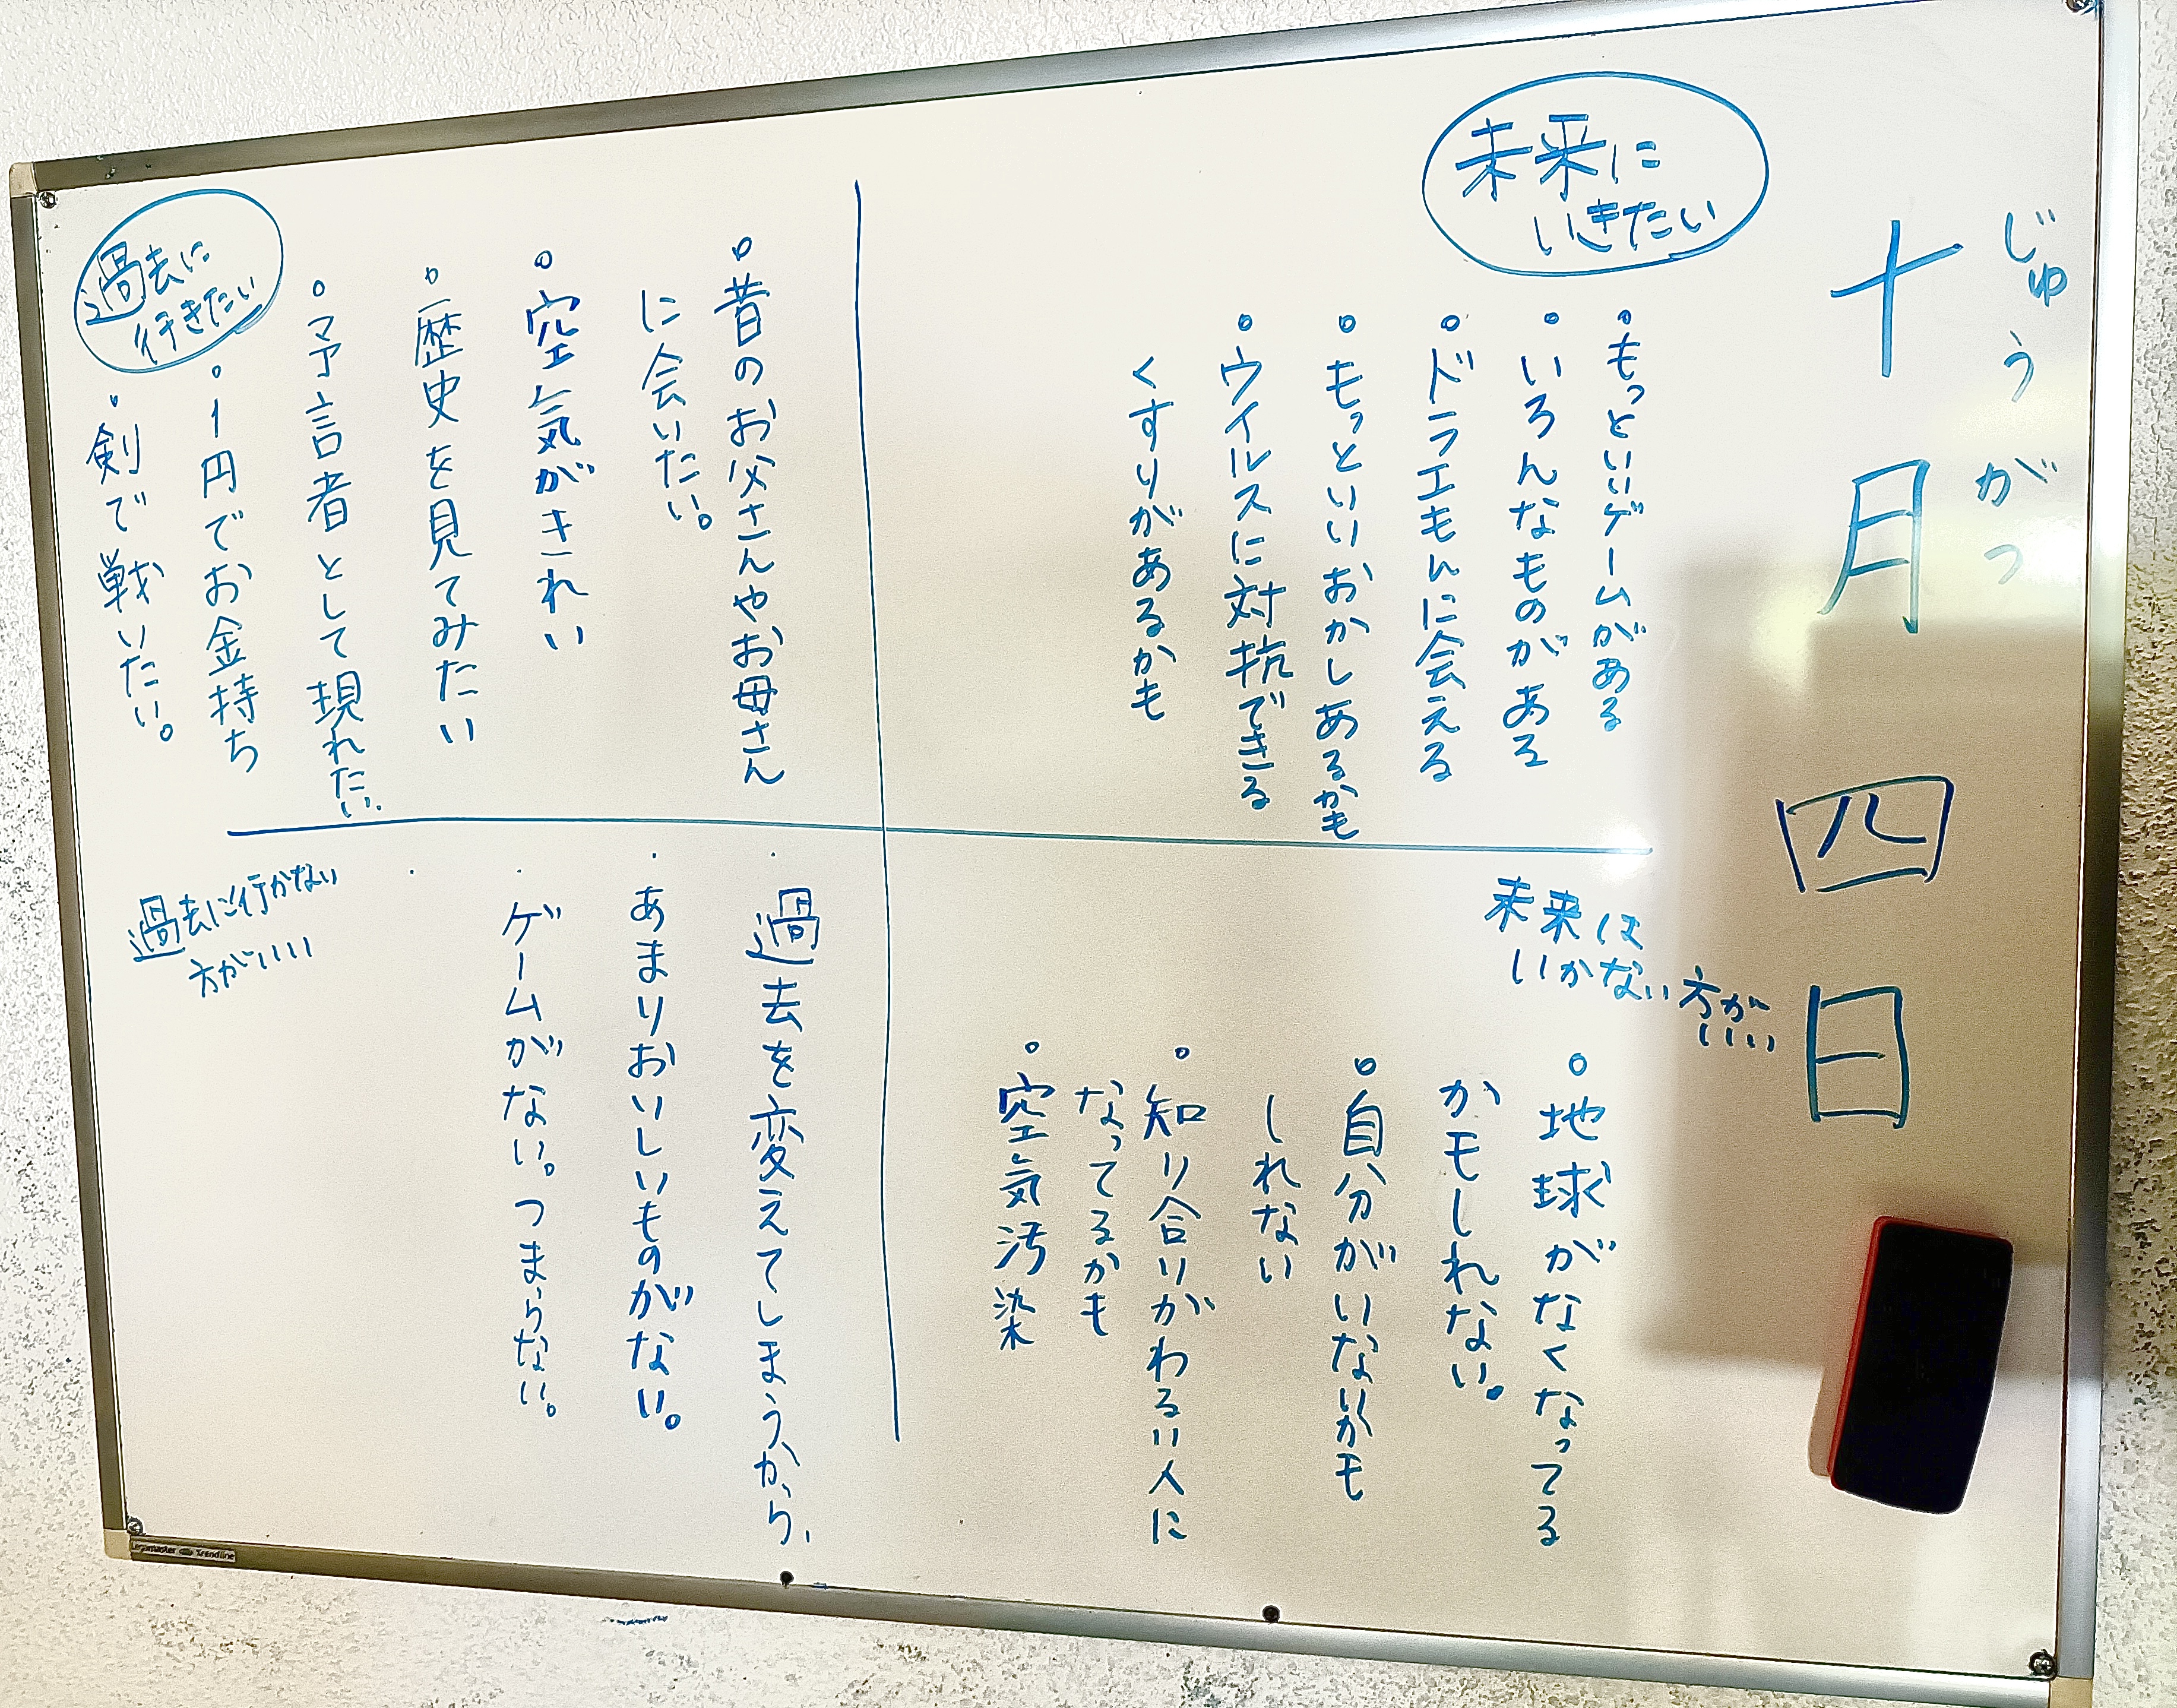 じゅうがつ
十月四日
未来に
いきたい
。もっといいゲームがある
。いろんなものがある
。ドラエもんに会える
。もっといいおかしあるかも
。ウイルスに対抗できる
くすりがあるかも
未来は
いかない方が
いい
。地球がなくなってる
かモしれない。
。自分がいないかモ
しれない
。知り合いがわるい人に
なってるかも
。空気汚染
。昔のお父さんやお母さん
に会いたい。
。空気がきれい
。歴史を見てみたい
。予言者として現れたい。
。1円でお金持ち
・剣で戦いたい。
過去に
行きたい
・過去を変えてしまうから、
・あまりおいしいものがない。
・ゲームがない。つまらない。
・
過去に行かない
方がいい
Legamaster Trendline